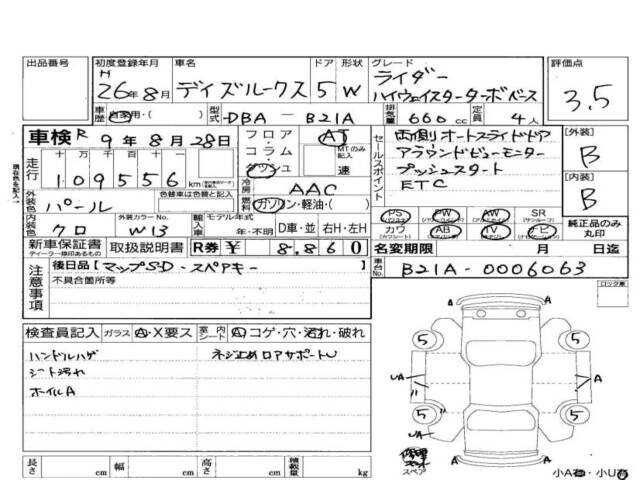 出品番号
初度登録年月 H 26年8月
車名 デイズルークス
ドア 5
形状 W
グレード ライダー
ハイウェイスターターボベース
評価点 3.5
車歴 自家用・( )
型式 DBA - B21A
排気量 660 cc
定員 4人
車検 R 9年8月28日
フロア・コラム・ダッシュ
AT
MTのみ記入 速
セールスポイント
両側オートスライドドア
アラウンドビューモニター
プッシュスタート
ETC
[外装] B
[内装] B
走行 十万 万 千 百 十 一
109556 km
現在色を記入
外装色 パール
色替車は色替と記入
冷房 AAC
燃料 ガソリン・軽油・( )
内装色 クロ
外装カラーNo. W13
輸入車 モデル年式 年・不明
D車・並 右H・左H
PS PW AW SR
カワ AB TV ナビ
純正品のみ丸印
新車保証書
ディーラー捺印あるもの
取扱説明書
R券 ¥ 8,860
名変期限 月 日迄
注意事項
後日品【マップSD・スペアキー
不具合箇所等
車台No. B21A-0006063
ロック車
検査員記入
ガラス A・X要ス
室内シート A コゲ・穴・汚れ・破れ
ハンドルハゲ
ネジ止め ロアサポートU
シート汚れ
ホイルA
5 5
UA A A
5 5
UA
A A
修理キット
スペア
長さ cm
幅 cm
高さ cm
積載量 kg
小A有・小U有